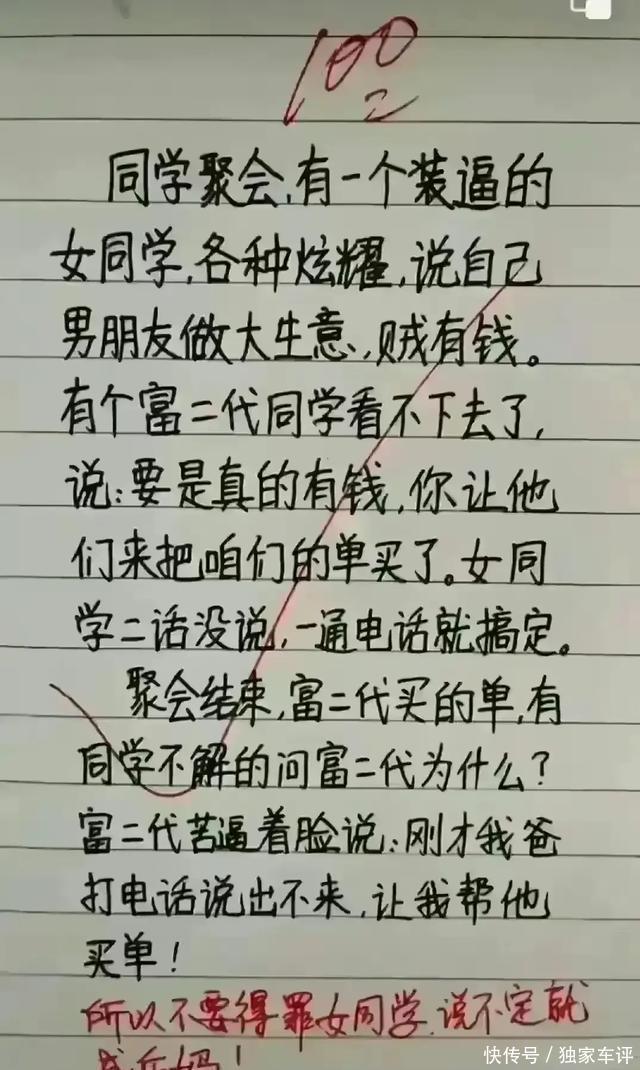 100
同学聚会,有一个装逼的
女同学,各种炫耀,说自己
男朋友做大生意,贼有钱。
有个富二代同学看不下去了,
说:要是真的有钱,你让他
们来把咱们的单买了。女同
学二话没说,一通电话就搞定。
聚会结束,富二代买的单,有
同学不解的问富二代为什么?
富二代苦逼着脸说:刚才我爸
打电话说出不来,让我帮他
买单!
所以不要得罪女同学,说不定就
成后妈!
快传号/独家车评